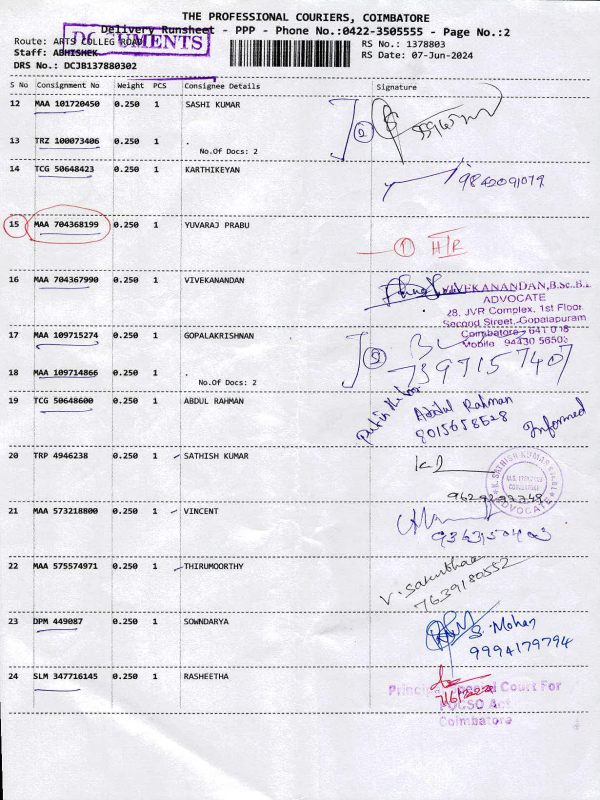 THE PROFESSIONAL COURIERS, COIMBATORE
Delivery Runsheet - PPP - Phone No.:0422-3505555 - Page No.:2
DOCUMENTS
Route: ARTS COLLEG ROAD
RS No.: 1378803
Staff: ABHISHEK
RS Date: 07-Jun-2024
DRS No.: DCJB137880302
S No Consignment No Weight PCS Consignee Details Signature
12 MAA 101720450 0.250 1 SASHI KUMAR
2
13 TRZ 100073406 0.250 1 .
No.Of Docs: 2
14 TCG 50648423 0.250 1 KARTHIKEYAN
9842091079
15 MAA 704368199 0.250 1 YUVARAJ PRABU
1 H/R
16 MAA 704367990 0.250 1 VIVEKANANDAN
VIVEKANANDAN,B.Sc.,B.L
ADVOCATE
28, JVR Complex, 1st Floor
Second Street, Gopalapuram
Coimbatore - 641 018
Mobile 94430 56503
17 MAA 109715274 0.250 1 GOPALAKRISHNAN
2
7397157407
18 MAA 109714866 0.250 1 .
No.Of Docs: 2
19 TCG 50648600 0.250 1 ABDUL RAHMAN
Abdul Rahman
8015658528
Informed
20 TRP 4946238 0.250 1 SATHISH KUMAR
K. SATHISH KUMAR
ADVOCATE
21 MAA 573218800 0.250 1 VINCENT
22 MAA 575574971 0.250 1 THIRUMOORTHY
7639180552
23 DPM 449087 0.250 1 SOWNDARYA
S. Mohan
9994179794
24 SLM 347716145 0.250 1 RASHEETHA
Principal Special Court For
POCSO Act
Coimbatore